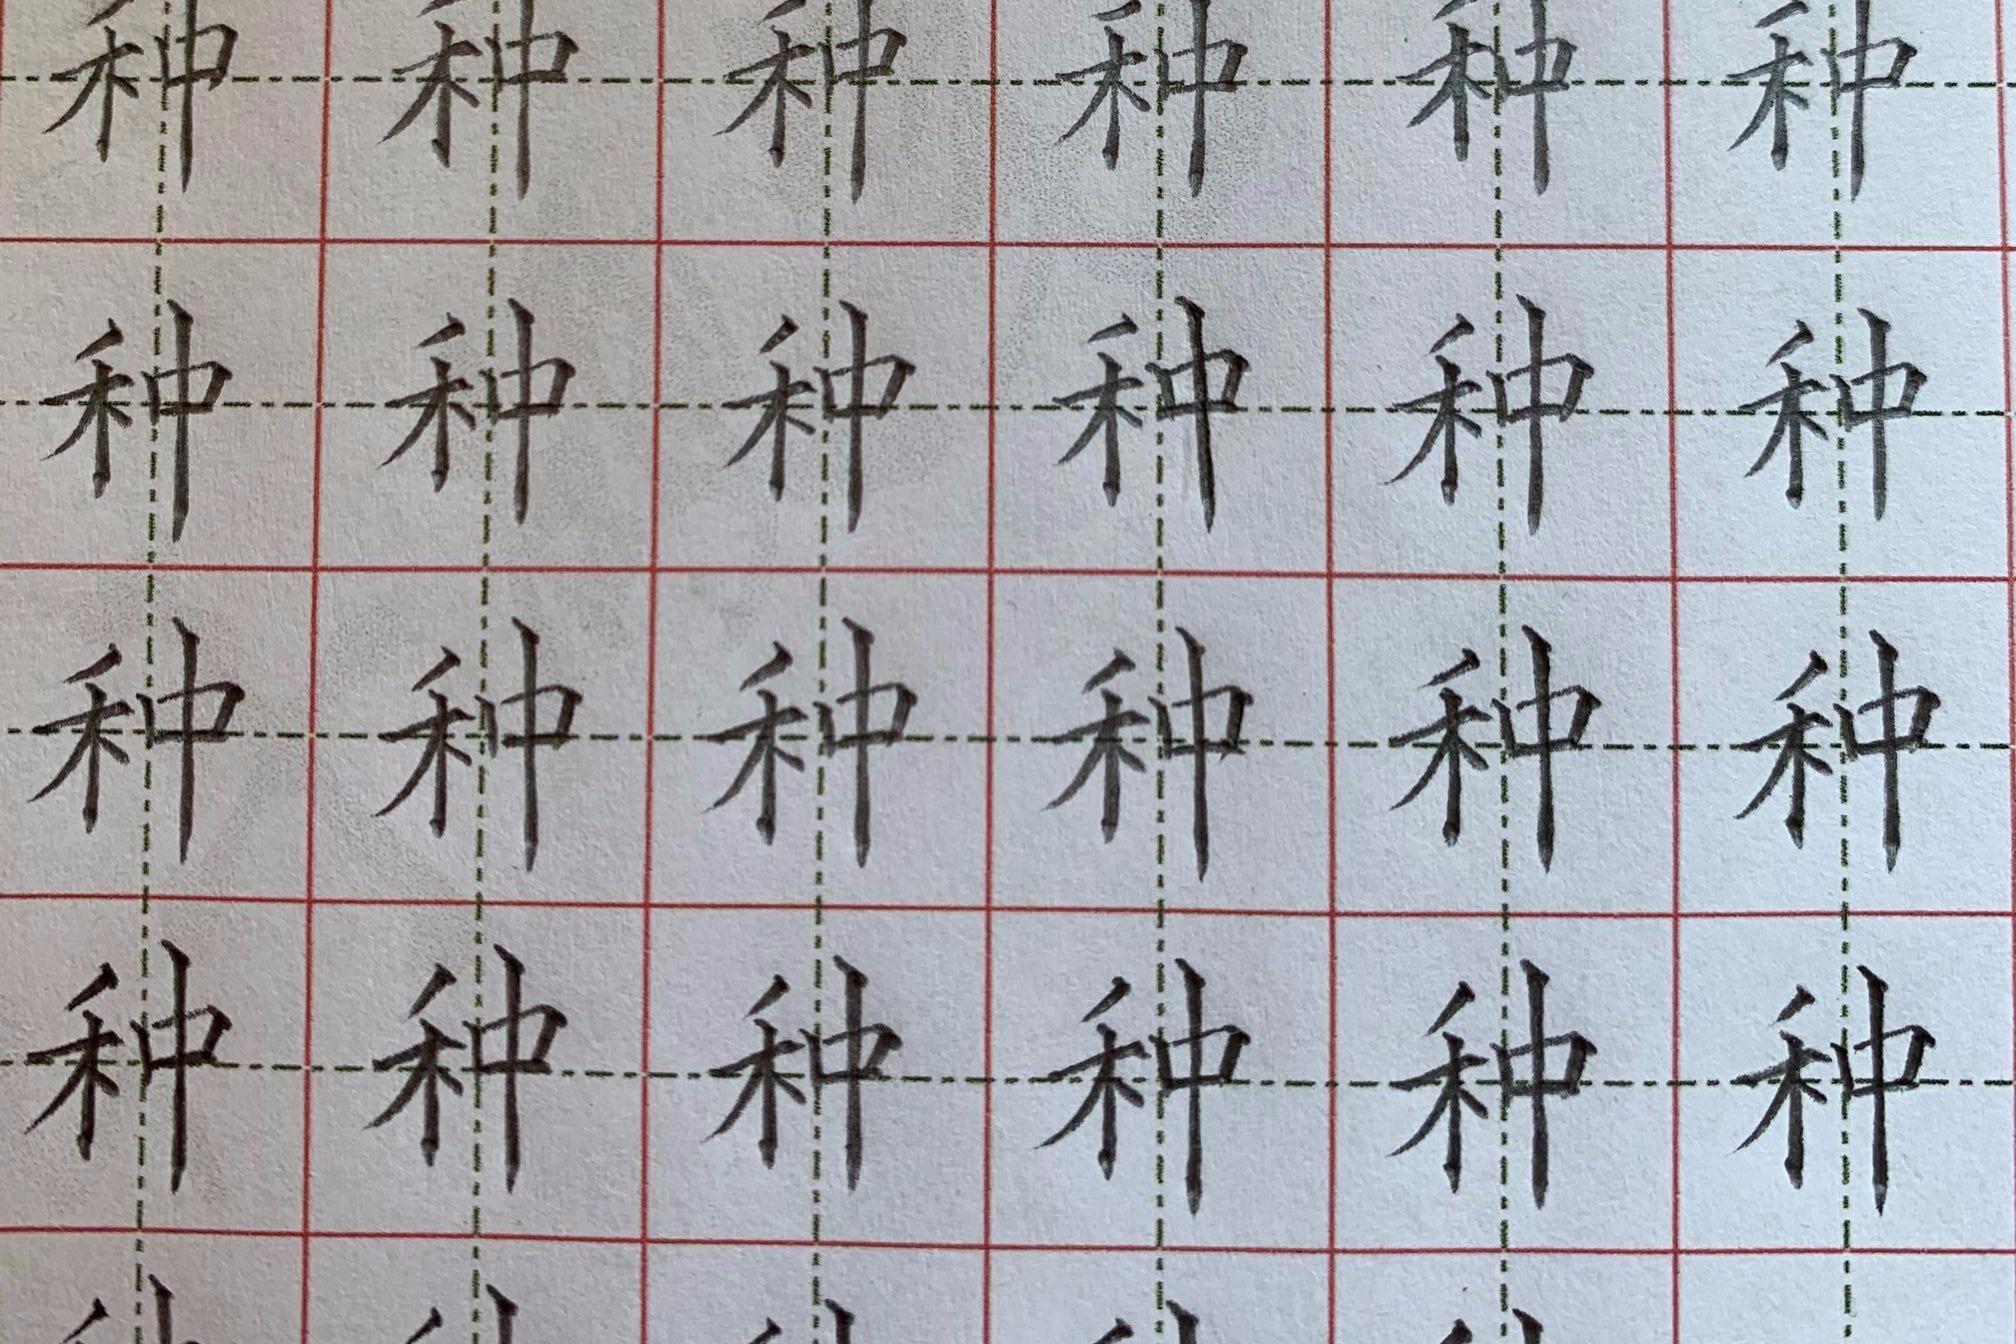 种种种种种种
种种种种种种
种种种种种种
种种种种种种